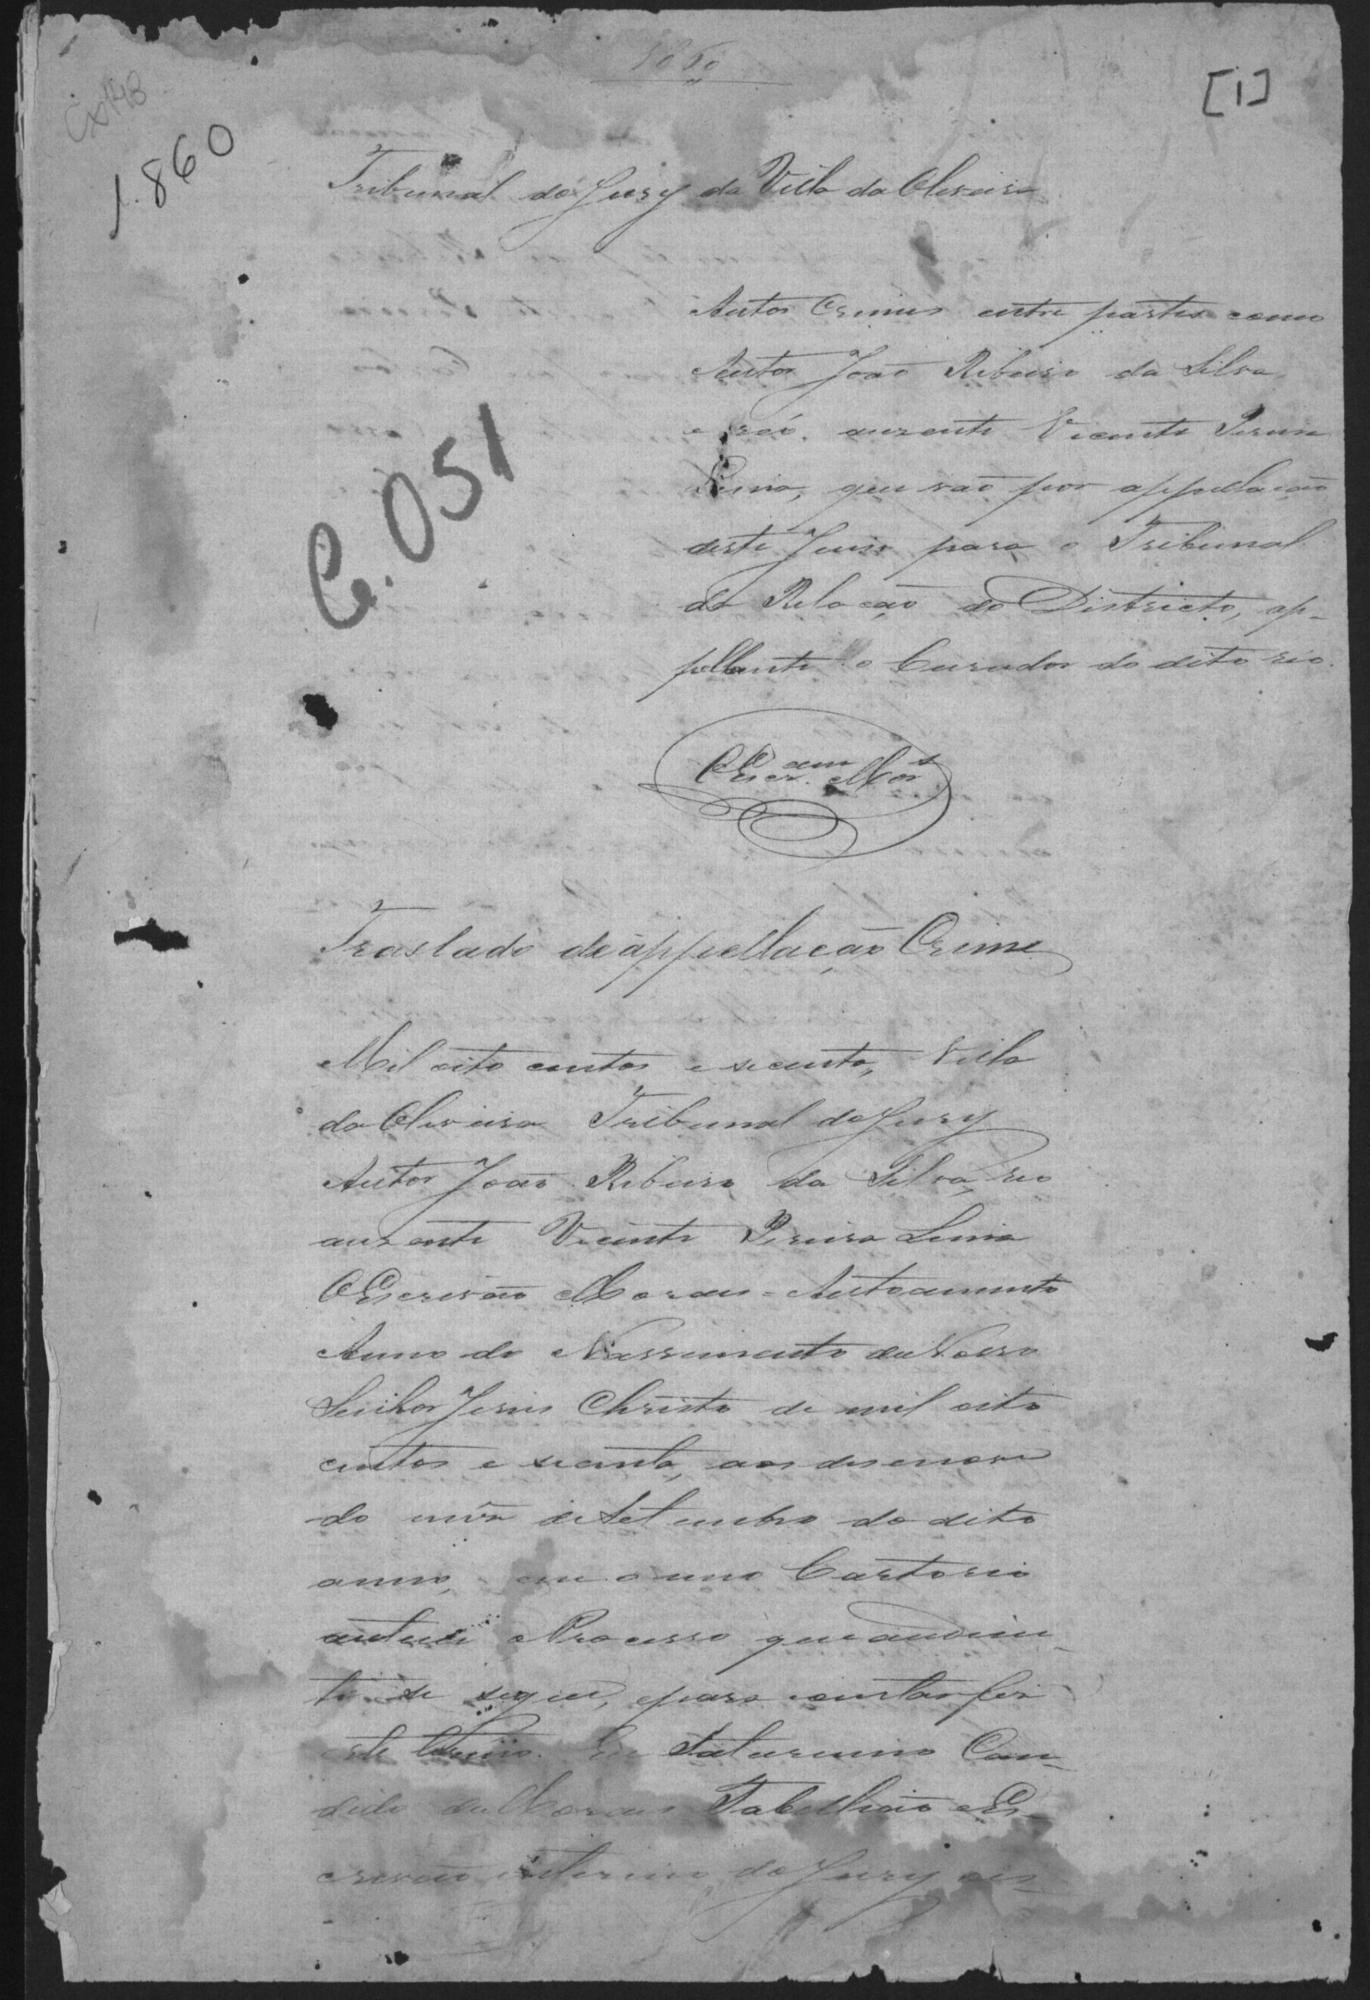 1860
[1]
Cx 148
1.860
Tribunal do Jury da Villa da Oliveira
Autos Crimes entre partes como
Autor João Ribeiro da Silva
e reó auzente Vicente Pereira
Lima, que vão por appellação
deste Juiso para o Tribunal
da Relação do Districto, ap-
pellante o Curador do dito reo.
C. 051
O Escr.am Mor.s
Traslado de appellação Crime
Mil oito centos e secenta, Villa
da Oliveira Tribunal do Jury
Autor João Ribeiro da Silva, reo
auzente Vicente Pereira Lima
O Escrivão Moraes - Autoamento
Anno do Nassimento de Nosso
Senhor Jesus Christo de mil oito
centos e secenta, aos desenove
do mês de Setembro do dito
anno, em o meu Cartorio
autuei o Processo que ao dian-
te se segue, e para constar fiz
este termo. Eu Saturnino Can-
dido de Moraes Tabellião e Es-
crivão interino do Jury es-